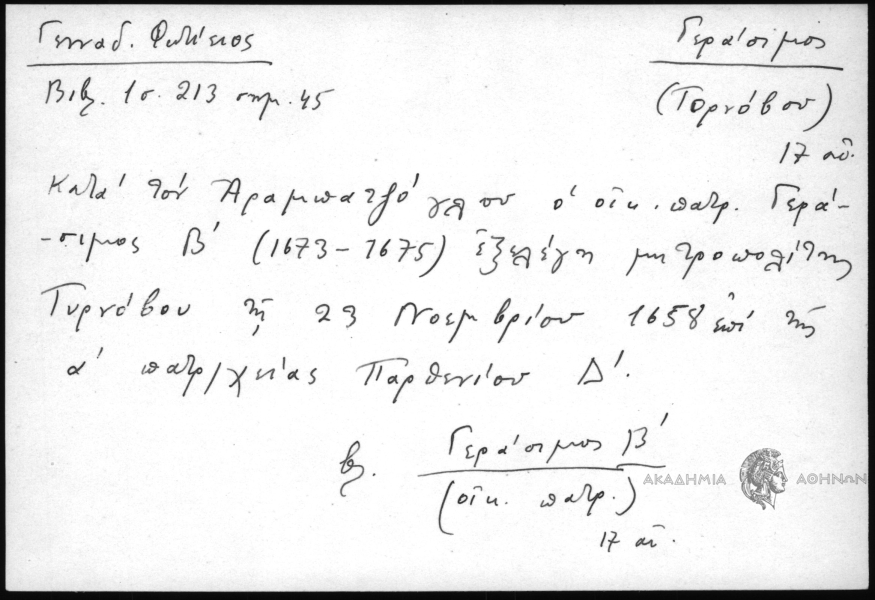 Γενναδ. Φωτίειος
Βιβλ. 1 σ. 213 σημ. 45
Γεράσιμος
(Τορνόβου)
17 αἰ.
Κατά τόν Ἀραμπατζόγλου ὁ οἰκ. πατρ. Γερά-
-σιμος Β' (1673-1675) ἐξελέγη μητροπολίτης
Τυρνόβου τῇ 23 Νοεμβρίου 1658 ἐπί τῆς
α' πατρ/χείας Παρθενίου Δ'.
βλ. Γεράσιμος Β'
(οἰκ. πατρ.)
17 αἰ.
ΑΚΑΔΗΜΙΑ ΑΘΗΝΩΝ